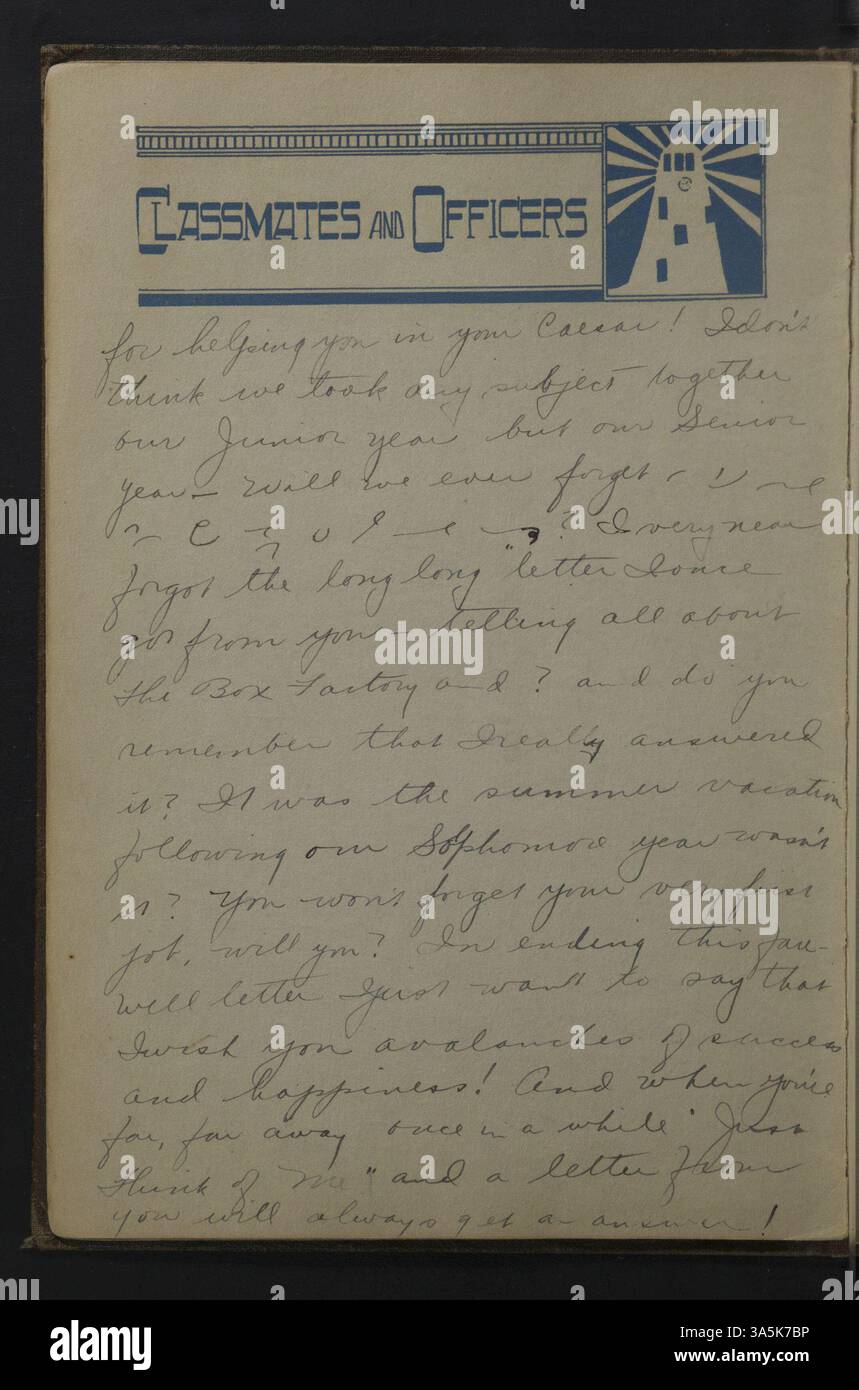 CLASSMATES AND OFFICERS
for helping you in your Caesar! I don't
think we took any subject together
our Junior year but our Senior
year — Will we ever forget
? I very near
forgot the long long letter I once
got from you — telling all about
the Box Factory and? and do you
remember that I really answered
it? It was the summer vacation
following our Sophomore year wasn't
it? You won't forget your very first
job, will you? In ending this far-
well letter I just want to say that
I wish you avalanches of success
and happiness! And when you're
far, far away once in a while "Just
think of Me" and a letter from
you will always get an answer!
alamy
alamy
alamy
alamy
alamy
a
a
a
a
a
a
a
a
a
a
a
alamy
Image ID: 3A5K7BP
www.alamy.com